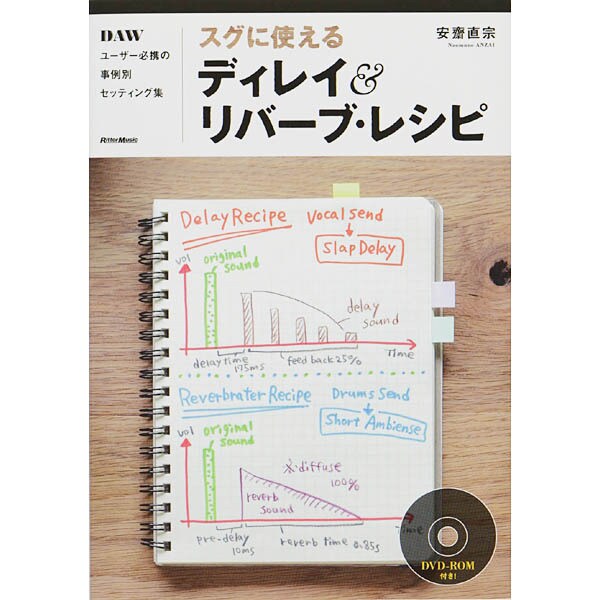 DAW
ユーザー必携の
事例別
セッティング集
スグに使える
ディレイ&
リバーブ・レシピ
安齋直宗
Naomune ANZAI
RittorMusic
Delay Recipe
Vocal Send
Slap Delay
vol
original
sound
delay
sound
delay time
175ms
feed back 25%
Time
Reverbrater Recipe
Drums Send
Short Ambiense
vol
original
sound
※diffuse
100%
reverb
sound
pre-delay
10ms
reverb time 0.85s
Time
DVD-ROM
付き!